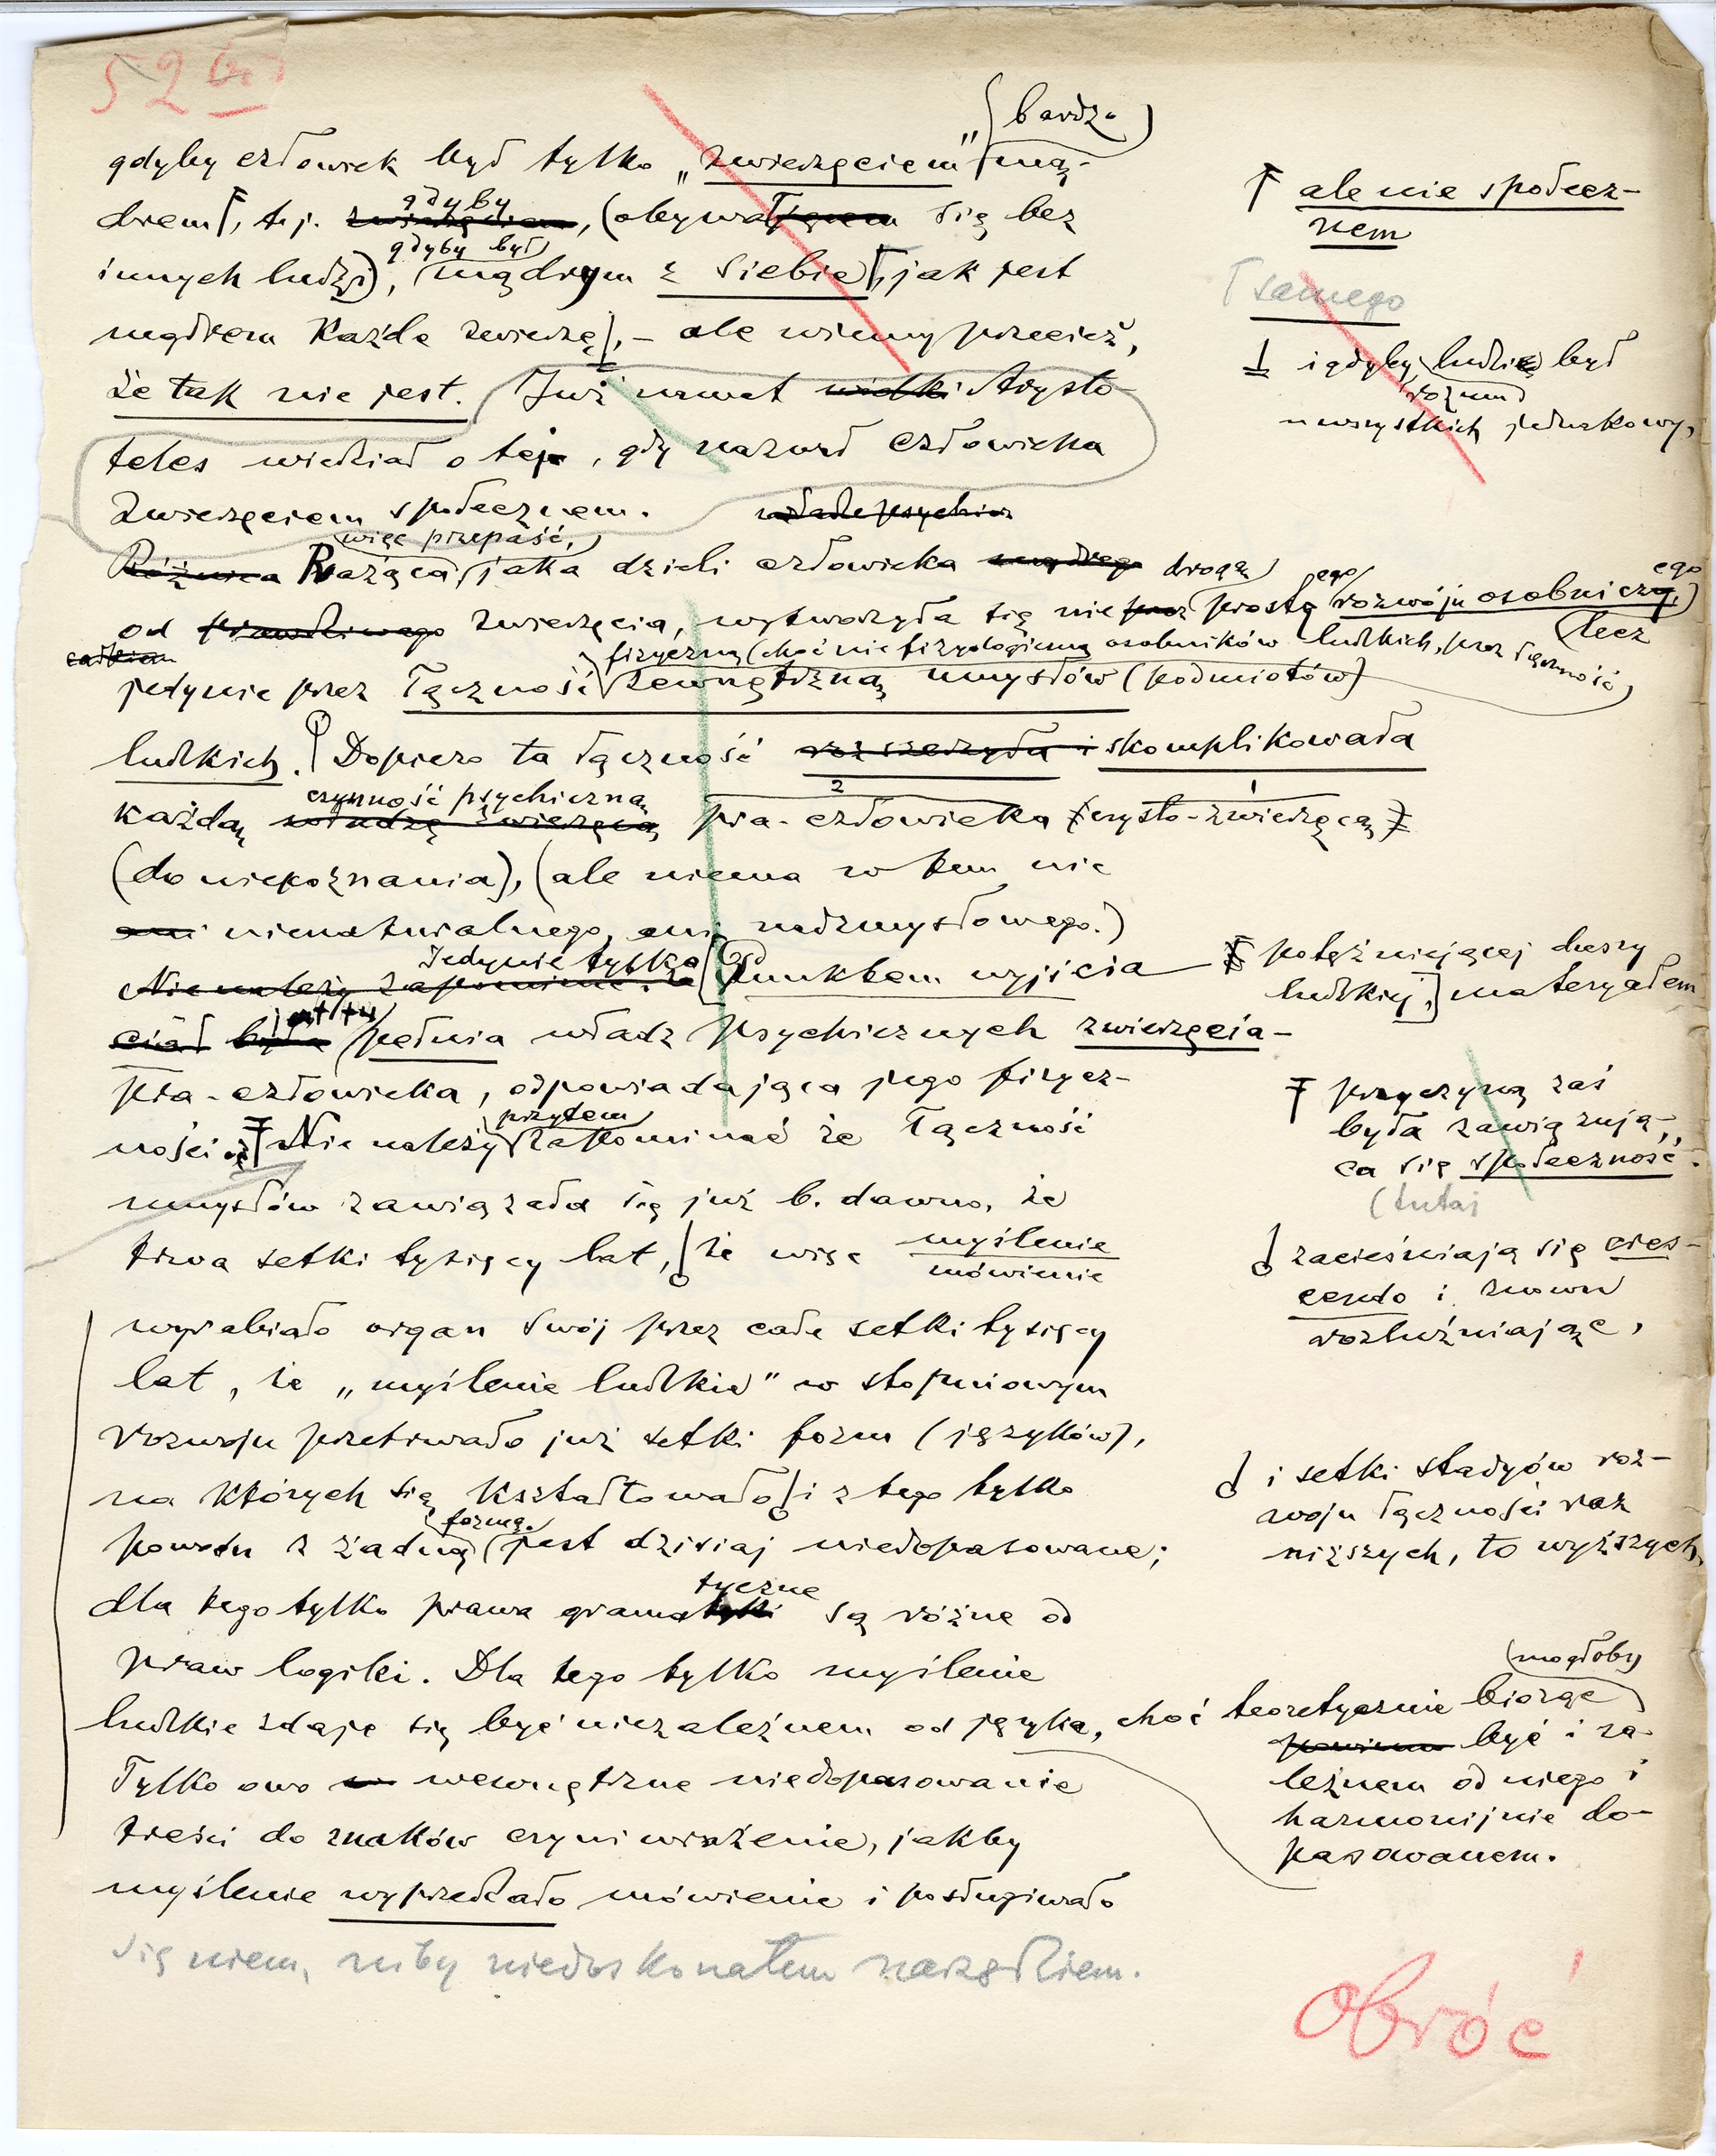 52
bardzo
gdyby człowiek był tylko „zwierzęciem” mą-
drem, t.j. gdyby (obywał się bez
innych ludzi), gdyby był mądrym z siebie, jak jest
mądrem każde zwierzę, – ale wiemy przecież,
że tak nie jest. Już nawet wielki Arysto-
teles wiedział o tej, gdy nazwał człowieka
zwierzęciem społecznem. władze psychicz
więc przepaść,
Różnica Rażąca jaka dzieli człowieka mądrego drogą
od prawdziwego zwierzęcia, wytworzyła się nie przez prostego rozwoju osobniczego, lecz
całkiem
fizyczną (choć nie fizyologiczną osobników ludzkich, przez łączność
jedynie przez łączność zewnętrzną umysłów (podmiotów)
ludzkich. Dopiero ta łączność rozszerzyła i skomplikowała
czynność psychiczną
każdą władzę zwierzęcą pra-człowieka czysto-zwierzęcą
2 1
(do niepoznania), (ale niema w tem nic
ani nienaturalnego, ani nadzmysłowego.)
Jedynie tylko
Nie należy zapominać, że Punktem wyjścia
ciał była jest tu pełnia władz psychicznych zwierzęcia-
pra-człowieka, odpowiadająca jego fizycz-
ności. Nie należy przytem zapominać że łączność
umysłów zawiązała się już b. dawno, że
trwa setki tysięcy lat, że więc myślenie
mówienie
wyrabiało organ swój przez całe setki tysięcy
lat, że „myślenie ludzkie” w stopniowym
rozwoju przetrwało już setki form (języków),
na których się kształtowało i z tego tylko
powodu z żadną formą jest dzisiaj niedopasowane;
dla tego tylko prawa gramatyczne są różne od
praw logiki. Dla tego tylko myślenie
ludzkie zdaje się być niezależnem od języka, choć teoretycznie biorąc
Tylko owo wewnętrzne niedopasowanie
treści do znaków czyni wrażenie, jakby
myślenie wyprzedzało mówienie i posługiwało
się niem, niby niedoskonałem narzędziem.
ale nie społecz-
nem
samego
i gdyby ludzie był
rozum
u wszystkich jednakowy,
potężniejącej duszy
ludzkiej, materyałem
przyczyną zaś
była zawiązują-
ca się społeczność.
(tutaj
zacieśniają się cres-
cendo i znowu
rozluźniając,
i setki stadyów roz-
woju łączności raz
niższych, to wyższych
mogłoby
powinno być i za-
leżnem od niego i
harmonijnie do-
pasowanem.
obróć